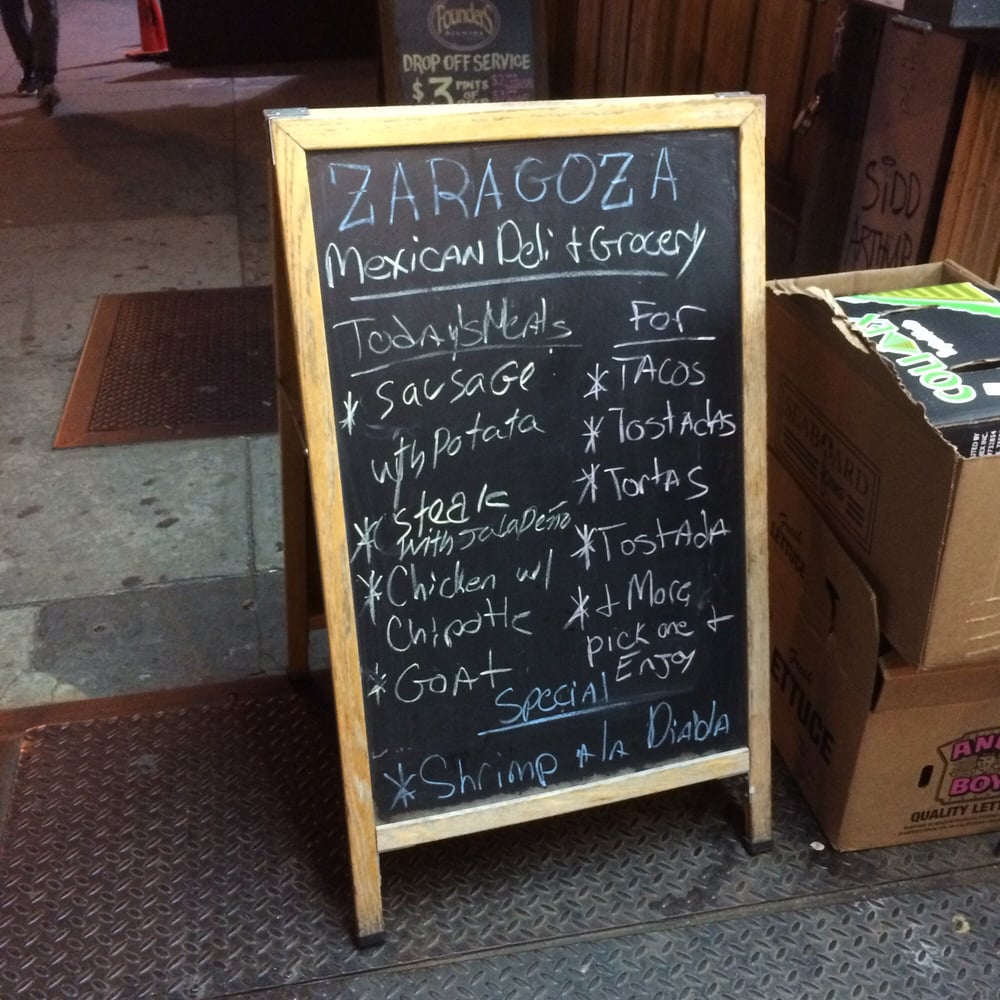 Founders
BREWING
DROP OFF SERVICE
$3 PINTS
OF
ZARAGOZA
Mexican Deli + Grocery
Today's Meats
* Sausage
with Potata
* Steak
with Jalapeño
* Chicken w/
Chipotle
* GOAT
For
* TACOS
* Tostadas
* Tortas
* Tostada
* + More
pick one +
Enjoy
Special
* Shrimp Ala Diabla
SIDD
ARTHUR
SEABOARD
LETTUCE
LETTUCE
AN
BOY
QUALITY LET